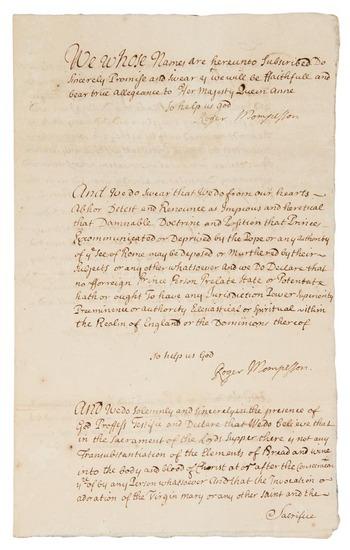 We whose Names are hereunto Subscribed Do
Sincerely Promise and Swear yt we will be ffaithfull and
bear true Allegeance to Her Majesty Queen Anne
So help us God
Roger Mompesson
And We do Swear that We do from our hearts
Abhor Detest and Renounce as Impious and heretical
that Damnable Doctrine and Position that Princes
Excommunicated or Deprived by the Pope or any Authority
of ye See of Rome may be deposed or Murthered by their
Subjects or any other whatsoever And We do Declare that
no fforreign Prince Person Prelate State or Potentate
hath or ought To have any Jurisdiction Power Superiority
Preeminence or authority Eclesiastical or Spiritual within
the Realm of England or the Dominions thereof
So help us God
Roger Mompesson.
And We do Solemnly and Sincerely in the presence of
God Proffess Testifie and Declare that We do believe that
in the Sacrament of the Lords Supper there is not any
Transubstantiation of the Elements of Bread and wine
into the body and blood of Christ at or after the Consecration
yr of by any Person whatsoever And that the Invocation or
adoration of the Virgin mary or any other Saint and the
Sacrifice